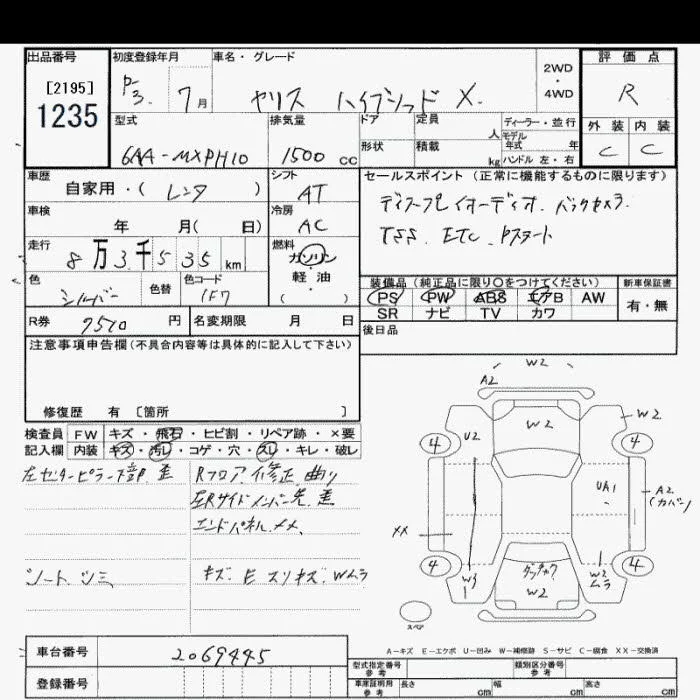 出品番号
[2195]
1235
初度登録年月
R3. 7月
車名・グレード
ヤリス ハイブリッド X.
2WD
・
4WD
評価点
R
外装 内装
C C
型式
6AA-MXPH10
排気量
1500 cc
ドア
形状
定員
人
積載
kg
ディーラー・並行
モデル年式 年
ハンドル 左・右
車歴
自家用・( レンタ )
シフト
AT
車検
年 月( 日)
冷房
AC
走行
8万3千535 km
燃料
ガソリン
・
軽・油
( )
色
シルバー
色替
色コード
1F7
R券 9510 円
名変期限 月 日
セールスポイント (正常に機能するものに限ります)
ディスプレイオーディオ. バックカメラ.
TSS. ETC. Pスタート
装備品 (純正品に限り〇をつけてください)
PS PW ABS エアB AW
SR ナビ TV カワ
新車保証書
有・無
後日品
注意事項申告欄 (不具合内容等は具体的に記入して下さい)
修復歴 有 [箇所 ]
検査員 FW キズ・飛石・ヒビ割・リペア跡・×要
記入欄 内装 キズ・汚レ・コゲ・穴・スレ・キレ・破レ
左センターピラー下部 歪
Rフロア 修正 曲り
左Rサイドメンバー先 歪
エンドパネル XX.
シート シミ
キズ. E スリキズ. Wムラ
W2
A2
W2
W2
4
U2
4
UA1
A2
(カバー)
XX
4
W3
4
W2
ムラ
ダッチャク
W2
スペア
A-キズ E-エクボ U-凹み W-補修跡 S-サビ C-腐食 XX-交換済
車台番号 2069445
登録番号
型式指定番号
参考
類別区分番号
参考
車庫証明用
参考
長さ cm
幅 cm
高さ cm